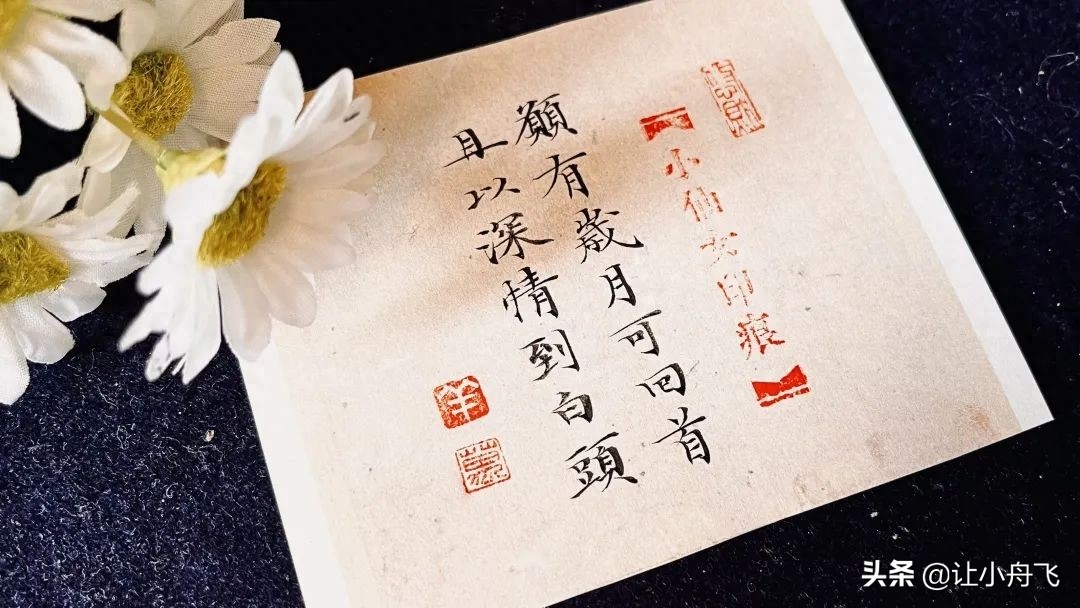 【小仙女印痕】
願有歲月可回首
且以深情到白頭
头条 @让小舟飞